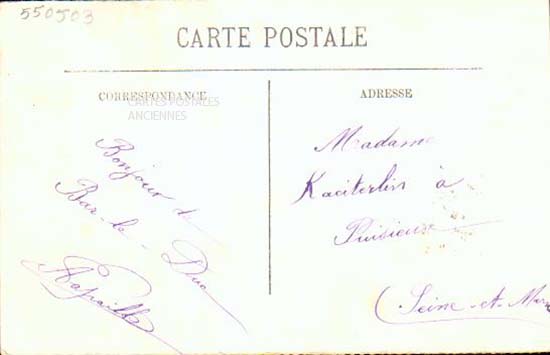 550503
CARTE POSTALE
CORRESPONDANCE
CARTES POSTALES
ANCIENNES
Bonjour de
Bar-le-Duc
ADRESSE
Madame
à
Puisieux
(Seine-et-Marne